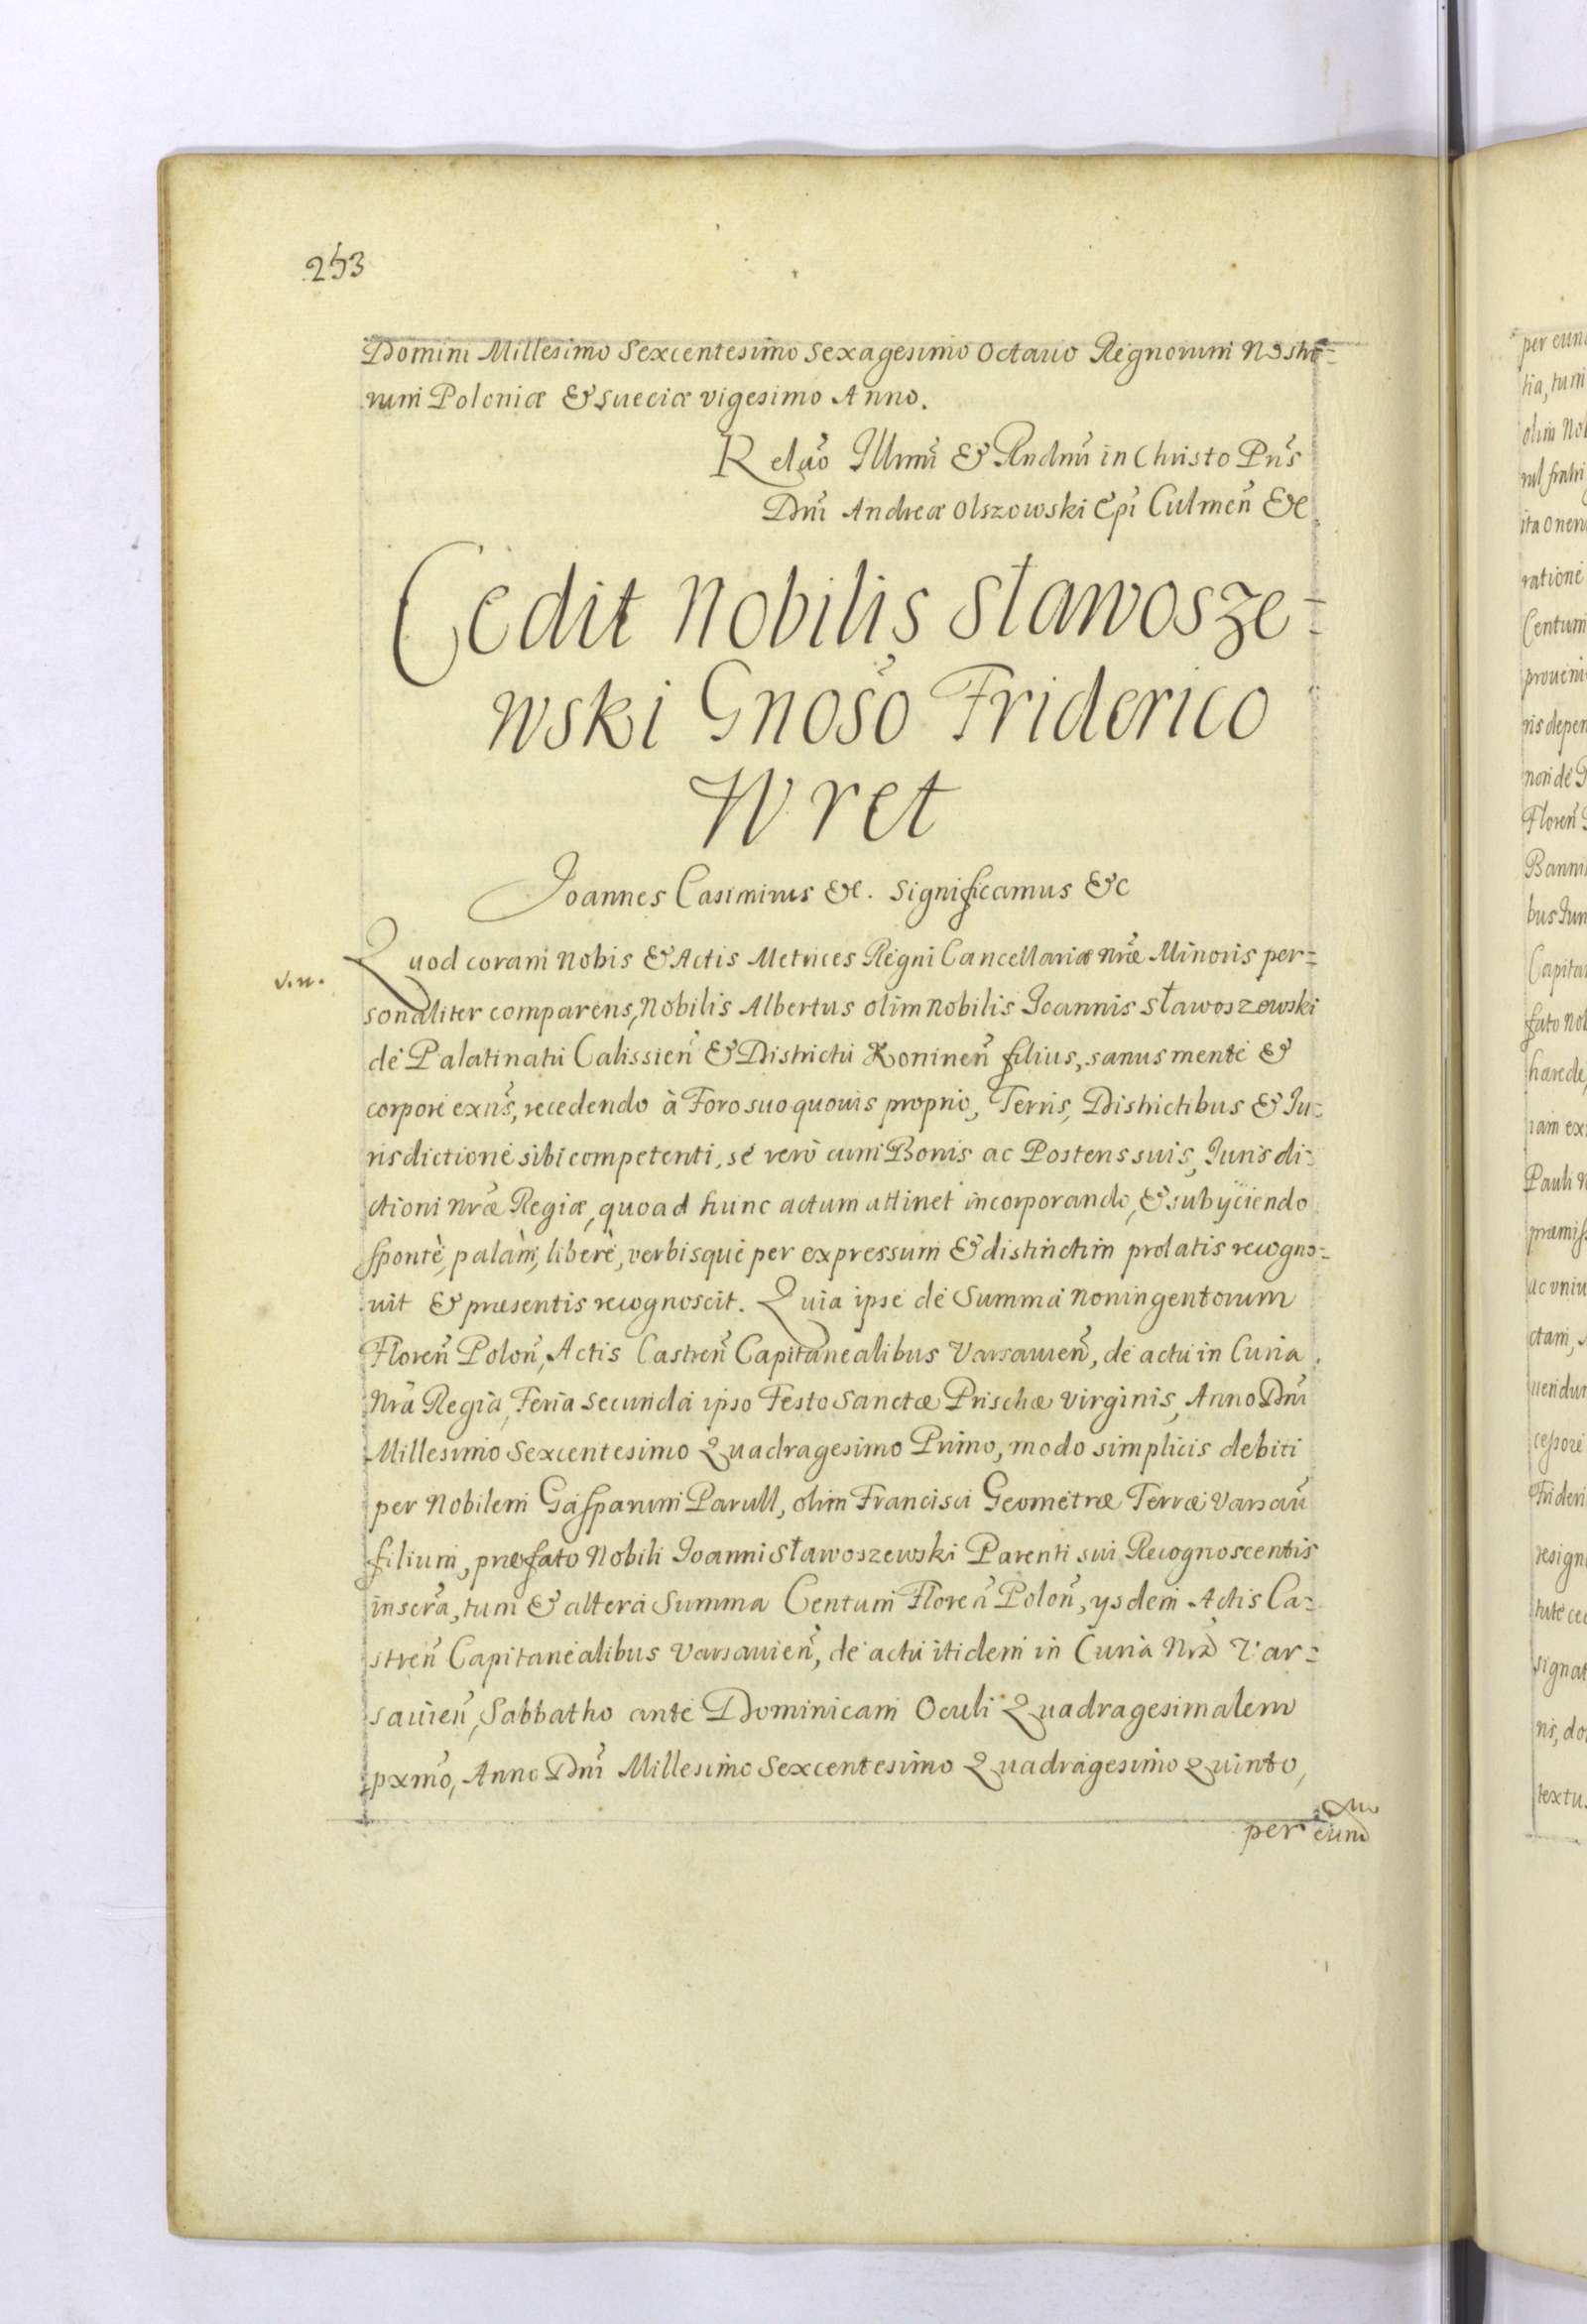 253
Domini Millesimo Sexcentesimo Sexagesimo Octauo Regnorum Nostro=
rum Poloniæ & Sueciæ vigesimo Anno.
Relāo Illrmi & Rndmi in Christo Pris
Dni Andreæ Olszowski Epi Culmen̄ &c
Cedit Nobilis Sławosze=
wski Gnoso Friderico
Wret
Joannes Casimirus &c. Significamus &c
v.n.
Quod coram Nobis & Actis Metrices Regni Cancellariæ nræ Minoris per=
sonaliter comparens, Nobilis Albertus olim Nobilis Joannis Sławoszewski
de Palatinatu Calissien̄ & Districtu Koninen̄ filius, sanus mente &
corpore exns, recedendo à Foro suo quouis proprio, Terris, Districtibus & Ju=
risdictione sibi competenti, se verò cum Bonis ac Posteris suis, Jurisdi=
ctioni nræ Regiæ, quoad hunc actum attinet incorporando, & subyciendo
sponte, palàm, liberè, verbisque per expressum & distinctim prolatis recogno=
uit & præsentis recognoscit. Quia ipse de Summa noningentorum
Floren̄ Polon̄, Actis Castren̄ Capitanealibus Varsauien̄, de actu in Curia
Nrā Regia, Feria secunda ipso Festo Sanctæ Prischæ virginis, Anno Dni
Millesimo Sexcentesimo Quadragesimo Primo, modo simplicis debiti
per Nobilem Gasparum Parull, olim Francisci Geometræ Terræ Varsau̅
filium, præfato Nobili Joanni Sławoszewski Parenti sui Recognoscentis
inscrā, tum & altera Summa Centum Floren̄ Polon̄, ysdem Actis Ca=
stren̄ Capitanealibus Varsauien̄, de actu itidem in Curia Nrā Var=
sauien̄, Sabbatho ante Dominicam Oculi Quadragesimalem
pxmō, Anno Dni Millesimo Sexcentesimo Quadragesimo Quinto,
per eund